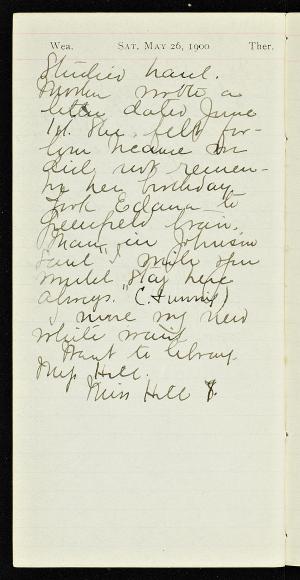 Wea. SAT, MAY 26, 1900 Ther.
Studied hard.
wrote a
letter dated June
1st. She felt for-
lorn because we
did not remem-
ber her birthday.
Took Edana to
Greenfield train.
in Johnson
said I
"Stay here
always."
I wore my new
white waist
Went to library.
Miss Hill